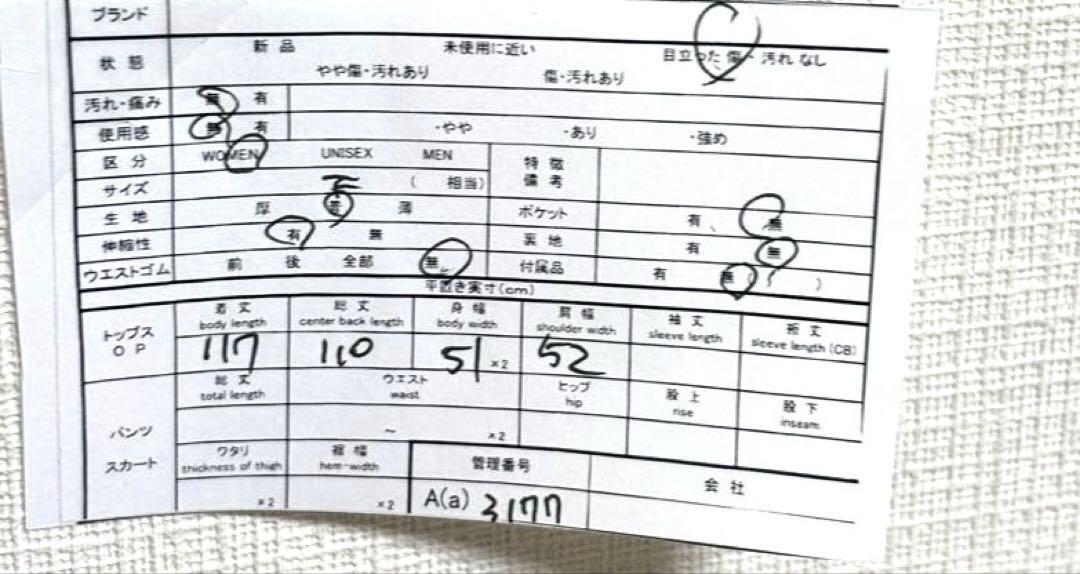 ブランド
状態 新品 未使用に近い 目立った傷・汚れなし
やや傷・汚れあり 傷・汚れあり
汚れ・痛み 無 有
使用感 無 有 ・やや ・あり ・強め
区分 WOMEN UNISEX MEN 特徴
備考
サイズ F ( 相当)
生地 厚 普 薄 ポケット 有、 無
伸縮性 有 無 裏地 有 無
ウエストゴム 前 後 全部 無 付属品 有 無 ( )
平置き実寸(cm)
トップス
OP
着丈 総丈 身幅 肩幅 袖丈 裄丈
body length center back length body width shoulder width sleeve length sleeve length (CB)
117 110 51 ×2 52
パンツ
スカート
総丈 ウエスト ヒップ 股上 股下
total length waist hip rise inseam
~ ×2
ワタリ 裾幅 管理番号 会社
thickness of thigh hem-width
×2 ×2 A(a) 3177